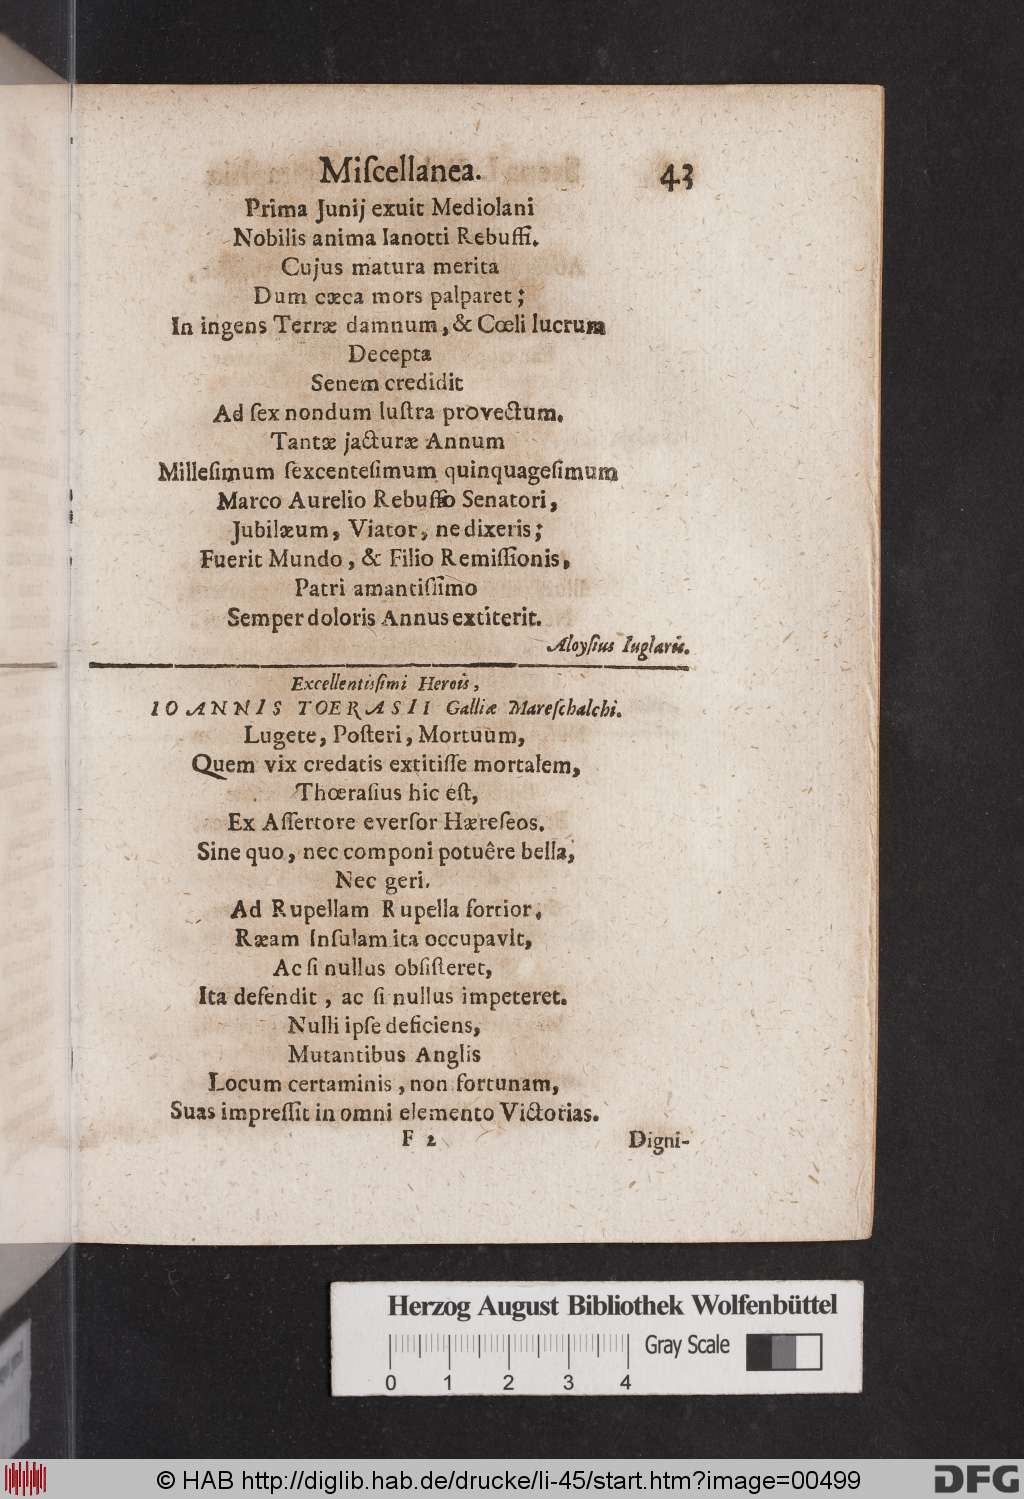 Miſcellanea. 43
Prima Junij exuit Mediolani
Nobilis anima Ianotti Rebuſſi.
Cujus matura merita
Dum cæca mors palparet;
In ingens Terræ damnum, & Cœli lucrum
Decepta
Senem credidit
Ad ſex nondum luſtra provectum.
Tantæ jacturæ Annum
Milleſimum ſexcenteſimum quinquageſimum
Marco Aurelio Rebuffo Senatori,
Jubilæum, Viator, ne dixeris;
Fuerit Mundo, & Filio Remiſſionis,
Patri amantiſſimo
Semper doloris Annus extiterit.
Aloyſius Iuglaris.
Excellentiſsimi Herois,
IOANNIS TOERASII Galliæ Mareſchalchi.
Lugete, Poſteri, Mortuum,
Quem vix credatis extitiſſe mortalem,
Thœraſius hic eſt,
Ex Aſſertore everſor Hæreſeos.
Sine quo, nec componi potuêre bella,
Nec geri.
Ad Rupellam Rupella fortior,
Ræam Inſulam ita occupavit,
Ac ſi nullus obſiſteret,
Ita defendit, ac ſi nullus impeteret.
Nulli ipſe deficiens,
Mutantibus Anglis
Locum certaminis, non fortunam,
Suas impreſſit in omni elemento Victorias.
F 2 Digni-
Herzog August Bibliothek Wolfenbüttel
Gray Scale
0 1 2 3 4
© HAB http://diglib.hab.de/drucke/li-45/start.htm?image=00499
DFG